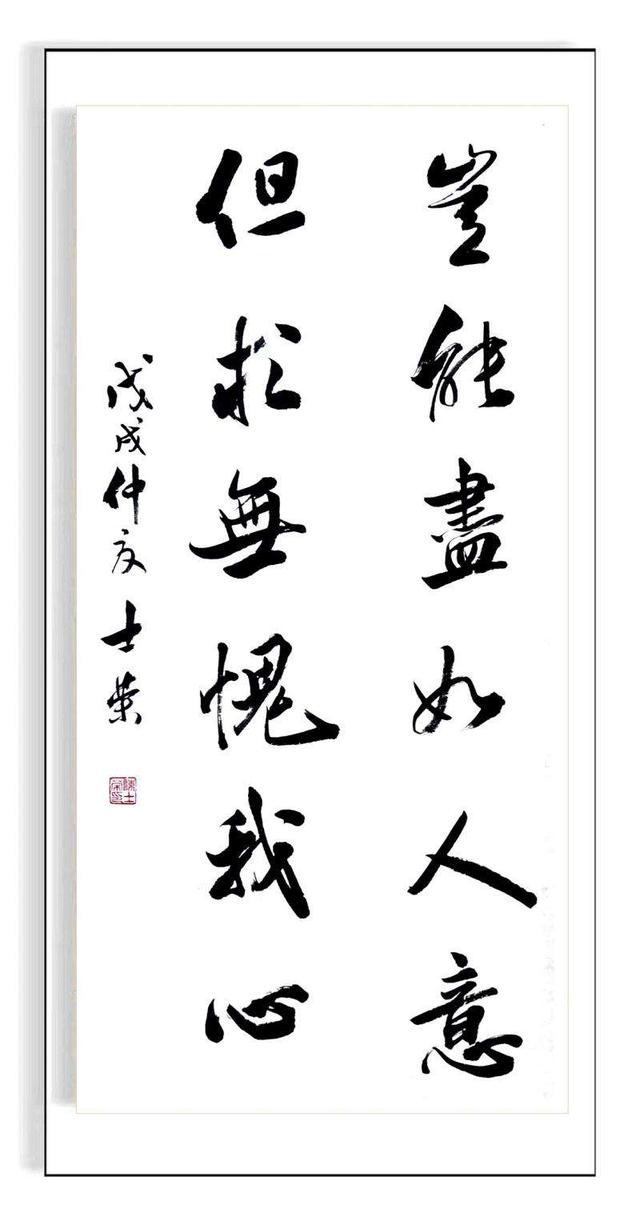 豈能盡如人意
但求無愧我心
戊戌仲夏士荣